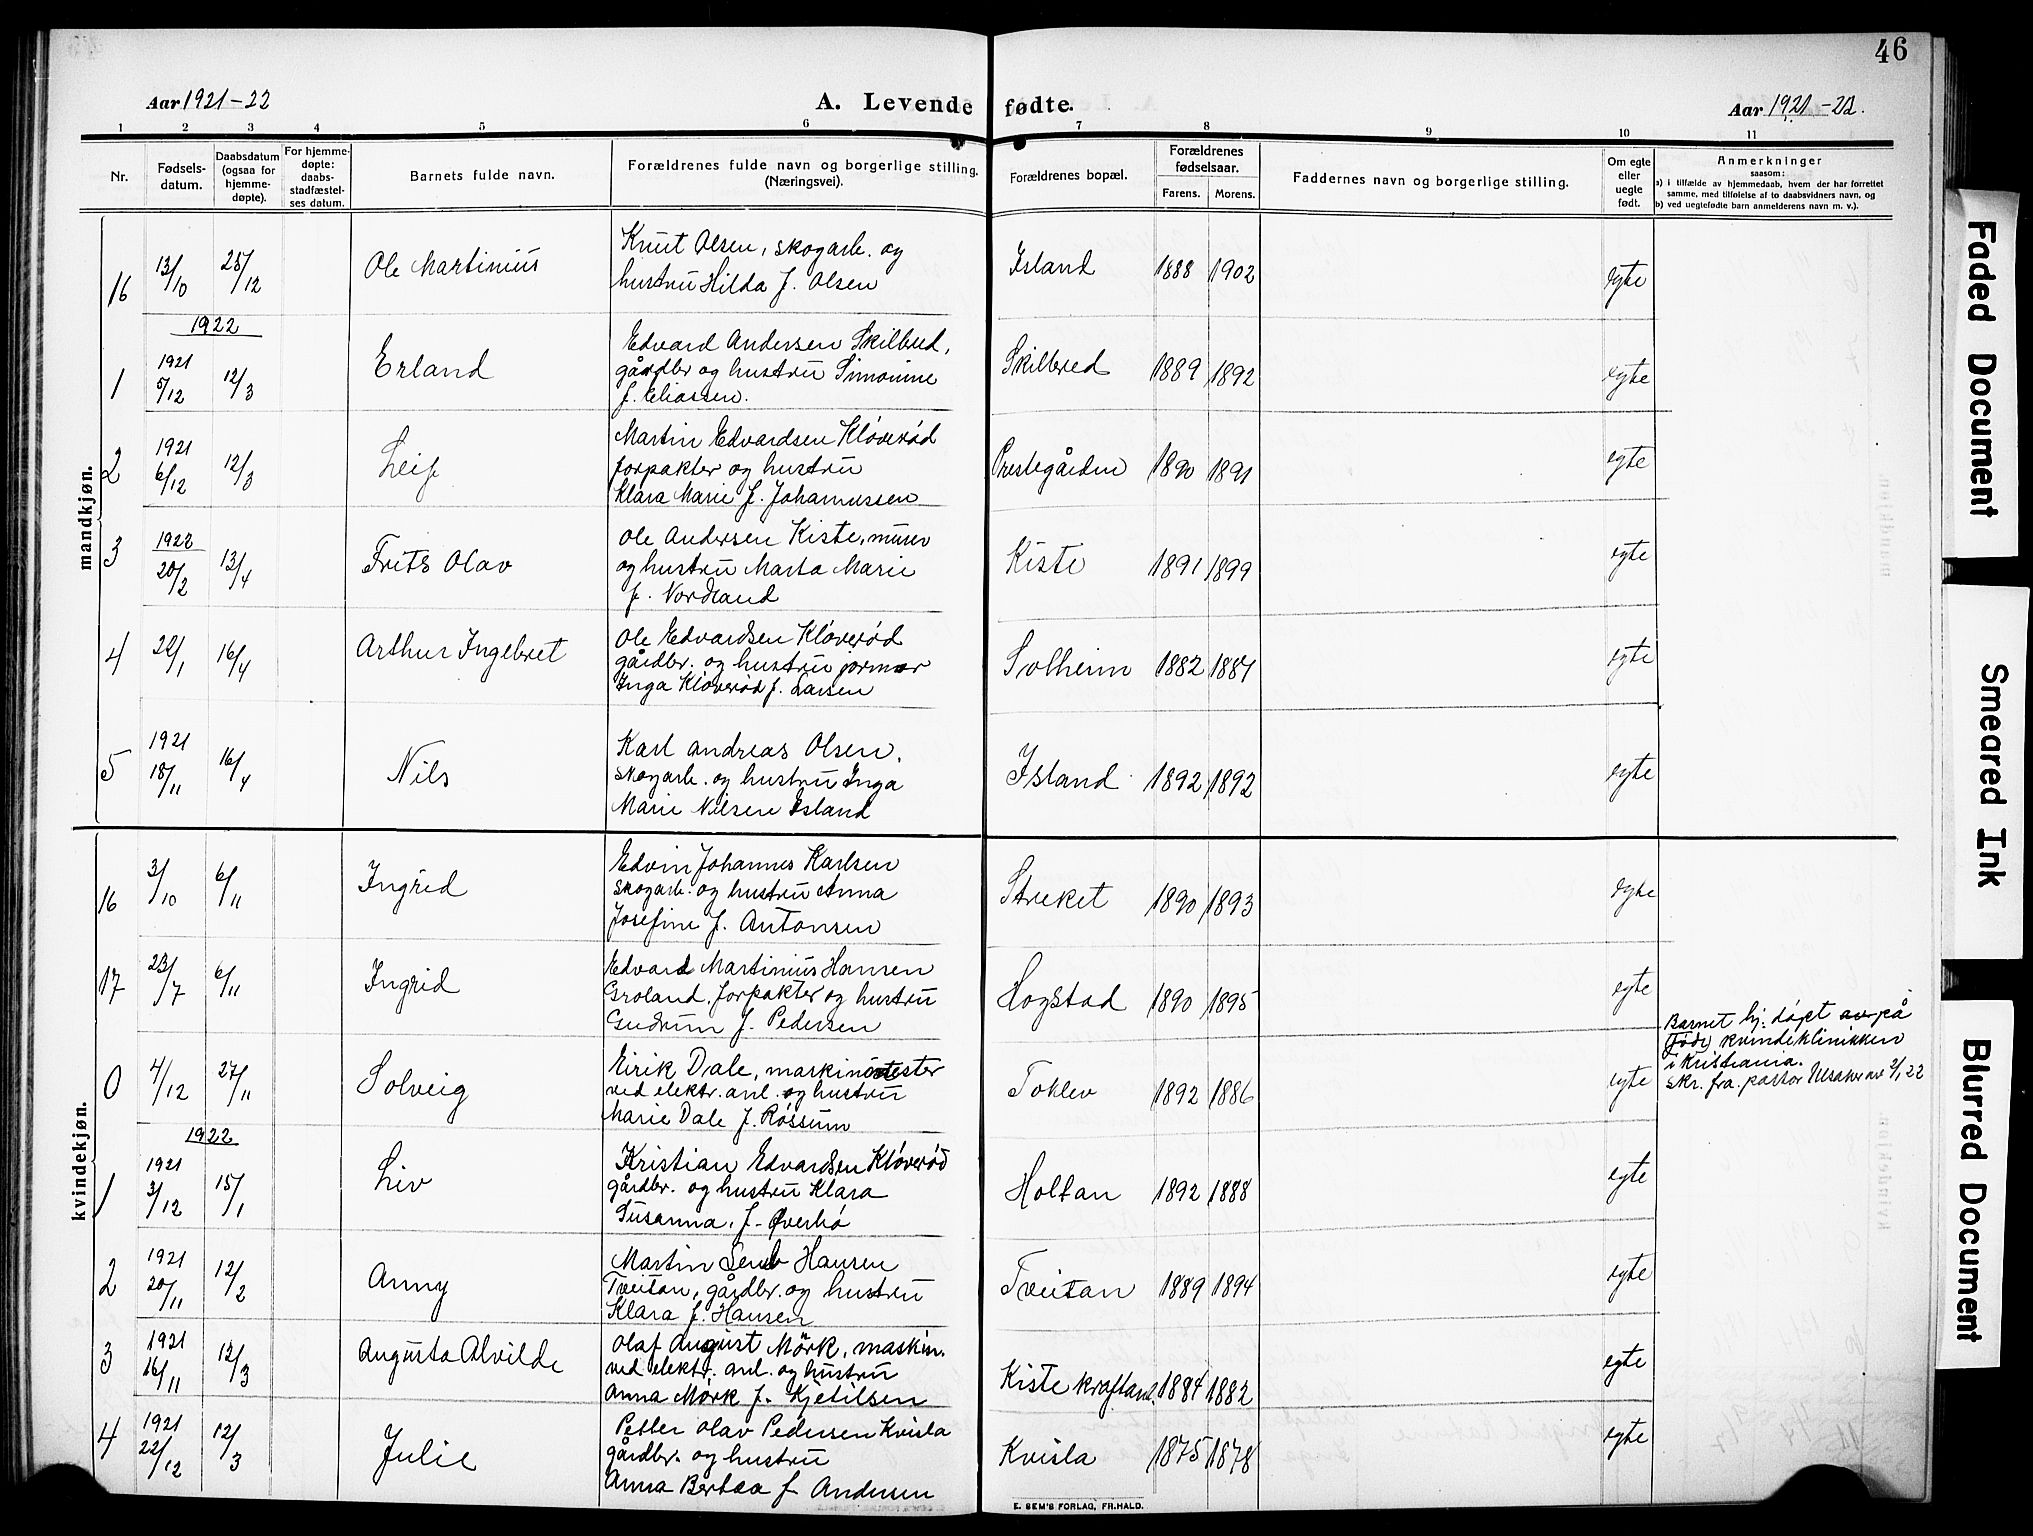 46
Aar 1921-22
A. Levende fødte.
Aar 1921-22.
1 2 3 4 5 6 7 8 9 10 11
Nr.
Fødsels-
datum.
Daabsdatum
(ogsaa for
hjemme-
døpte).
For hjemme-
døpte:
daabs-
stadfæstel-
ses datum.
Barnets fulde navn.
Forældrenes fulde navn og borgerlige stilling.
(Næringsvei).
Forældrenes bopæl.
Forældrenes
fødselsaar.
Farens. Morens.
Faddernes navn og borgerlige stilling.
Om egte
eller
uegte
født.
Anmerkninger
saasom:
a) i tilfælde av hjemmedaab, hvem der har forrettet
samme, med tilføielse af to daabsvidners navn, og
b) ved uegtefødte barn anmelderens navn m. v.).
mandkjøn.
16 13/10 28/12 Ole Martinius
Knut Olsen, skogarb. og
hustru Hilda f. Olsen
Island 1888 1902 egte
1922
1 1921 5/12 12/3 Erland
Edvard Andersen Skilbred,
gårdbr og hustru Simonine
f. Eliassen.
Skilbred 1889 1892 egte
2 1921 6/12 12/3 Leif
Martin Edvardsen Kløverød
forpakter og hustru
Klara Marie f. Johannessen
Prestegården 1890 1891 egte
3 1922 20/2 13/4 Frits Olav
Ole Andersen Kiste, murer
og hustru Marta Marie
f. Nordland
Kiste 1891 1899 egte
4 22/1 16/4 Arthur Ingebret
Ole Edvardsen Kløverød
gårdbr. og hustru jormor
Inga Kløverød f. Larsen
Solheim 1882 1884 egte
5 1921 18/11 16/4 Nils
Karl Andreas Olsen,
skogarb. og hustru Inga
Marie Nilsen Island
Island 1892 1892 egte
kvindekjøn.
16 3/10 6/11 Ingrid
Edvin Johannes Karlsen
skogarb. og hustru Anna
Josefine f. Antonsen
Streket 1890 1893 egte
17 23/7 6/11 Ingrid
Edvard Martinius Hansen
Groland, forpakter og hustru
Gudrun f. Pedersen
Hogstad 1890 1895 egte
0 4/12 27/11 Solveig
Eirik Dale, maskinmester
ved elektr. anl. og hustru
Marie Dale f. Røssum
Toklev 1892 1886 egte
Barnet hj. døpt av på
Føde kvindeklinikken
i Kristiania.
skr. fra pastor 2/1 22
1922
1 1921 3/12 15/1 Liv
Kristian Edvardsen Kløverød
gårdbr. og hustru Klara
Susanna, f. Øverbø
Holtan 1892 1888 egte
2 1921 20/11 12/2 Anny
Martin Hansen
Tveitan, gårdbr. og hustru
Klara f. Hansen
Tveitan 1889 1894 egte
3 1921 26/11 12/3 Augusta Alvilde
Olaf August Mörk, maskin.
ved elektr. anl. og hustru
Anna Mörk f. Kjetilsen
Kiste kraftanl. 1884 1882 egte
4 1921 22/12 12/3 Julie
Petter Olav Pedersen Kvisla
gårdbr. og hustru
Anna Bertea f Andersen
Kvisla 1875 1878 egte
E. SEM'S FORLAG, FR.HALD.
Faded Document
Smeared Ink
Blurred Document